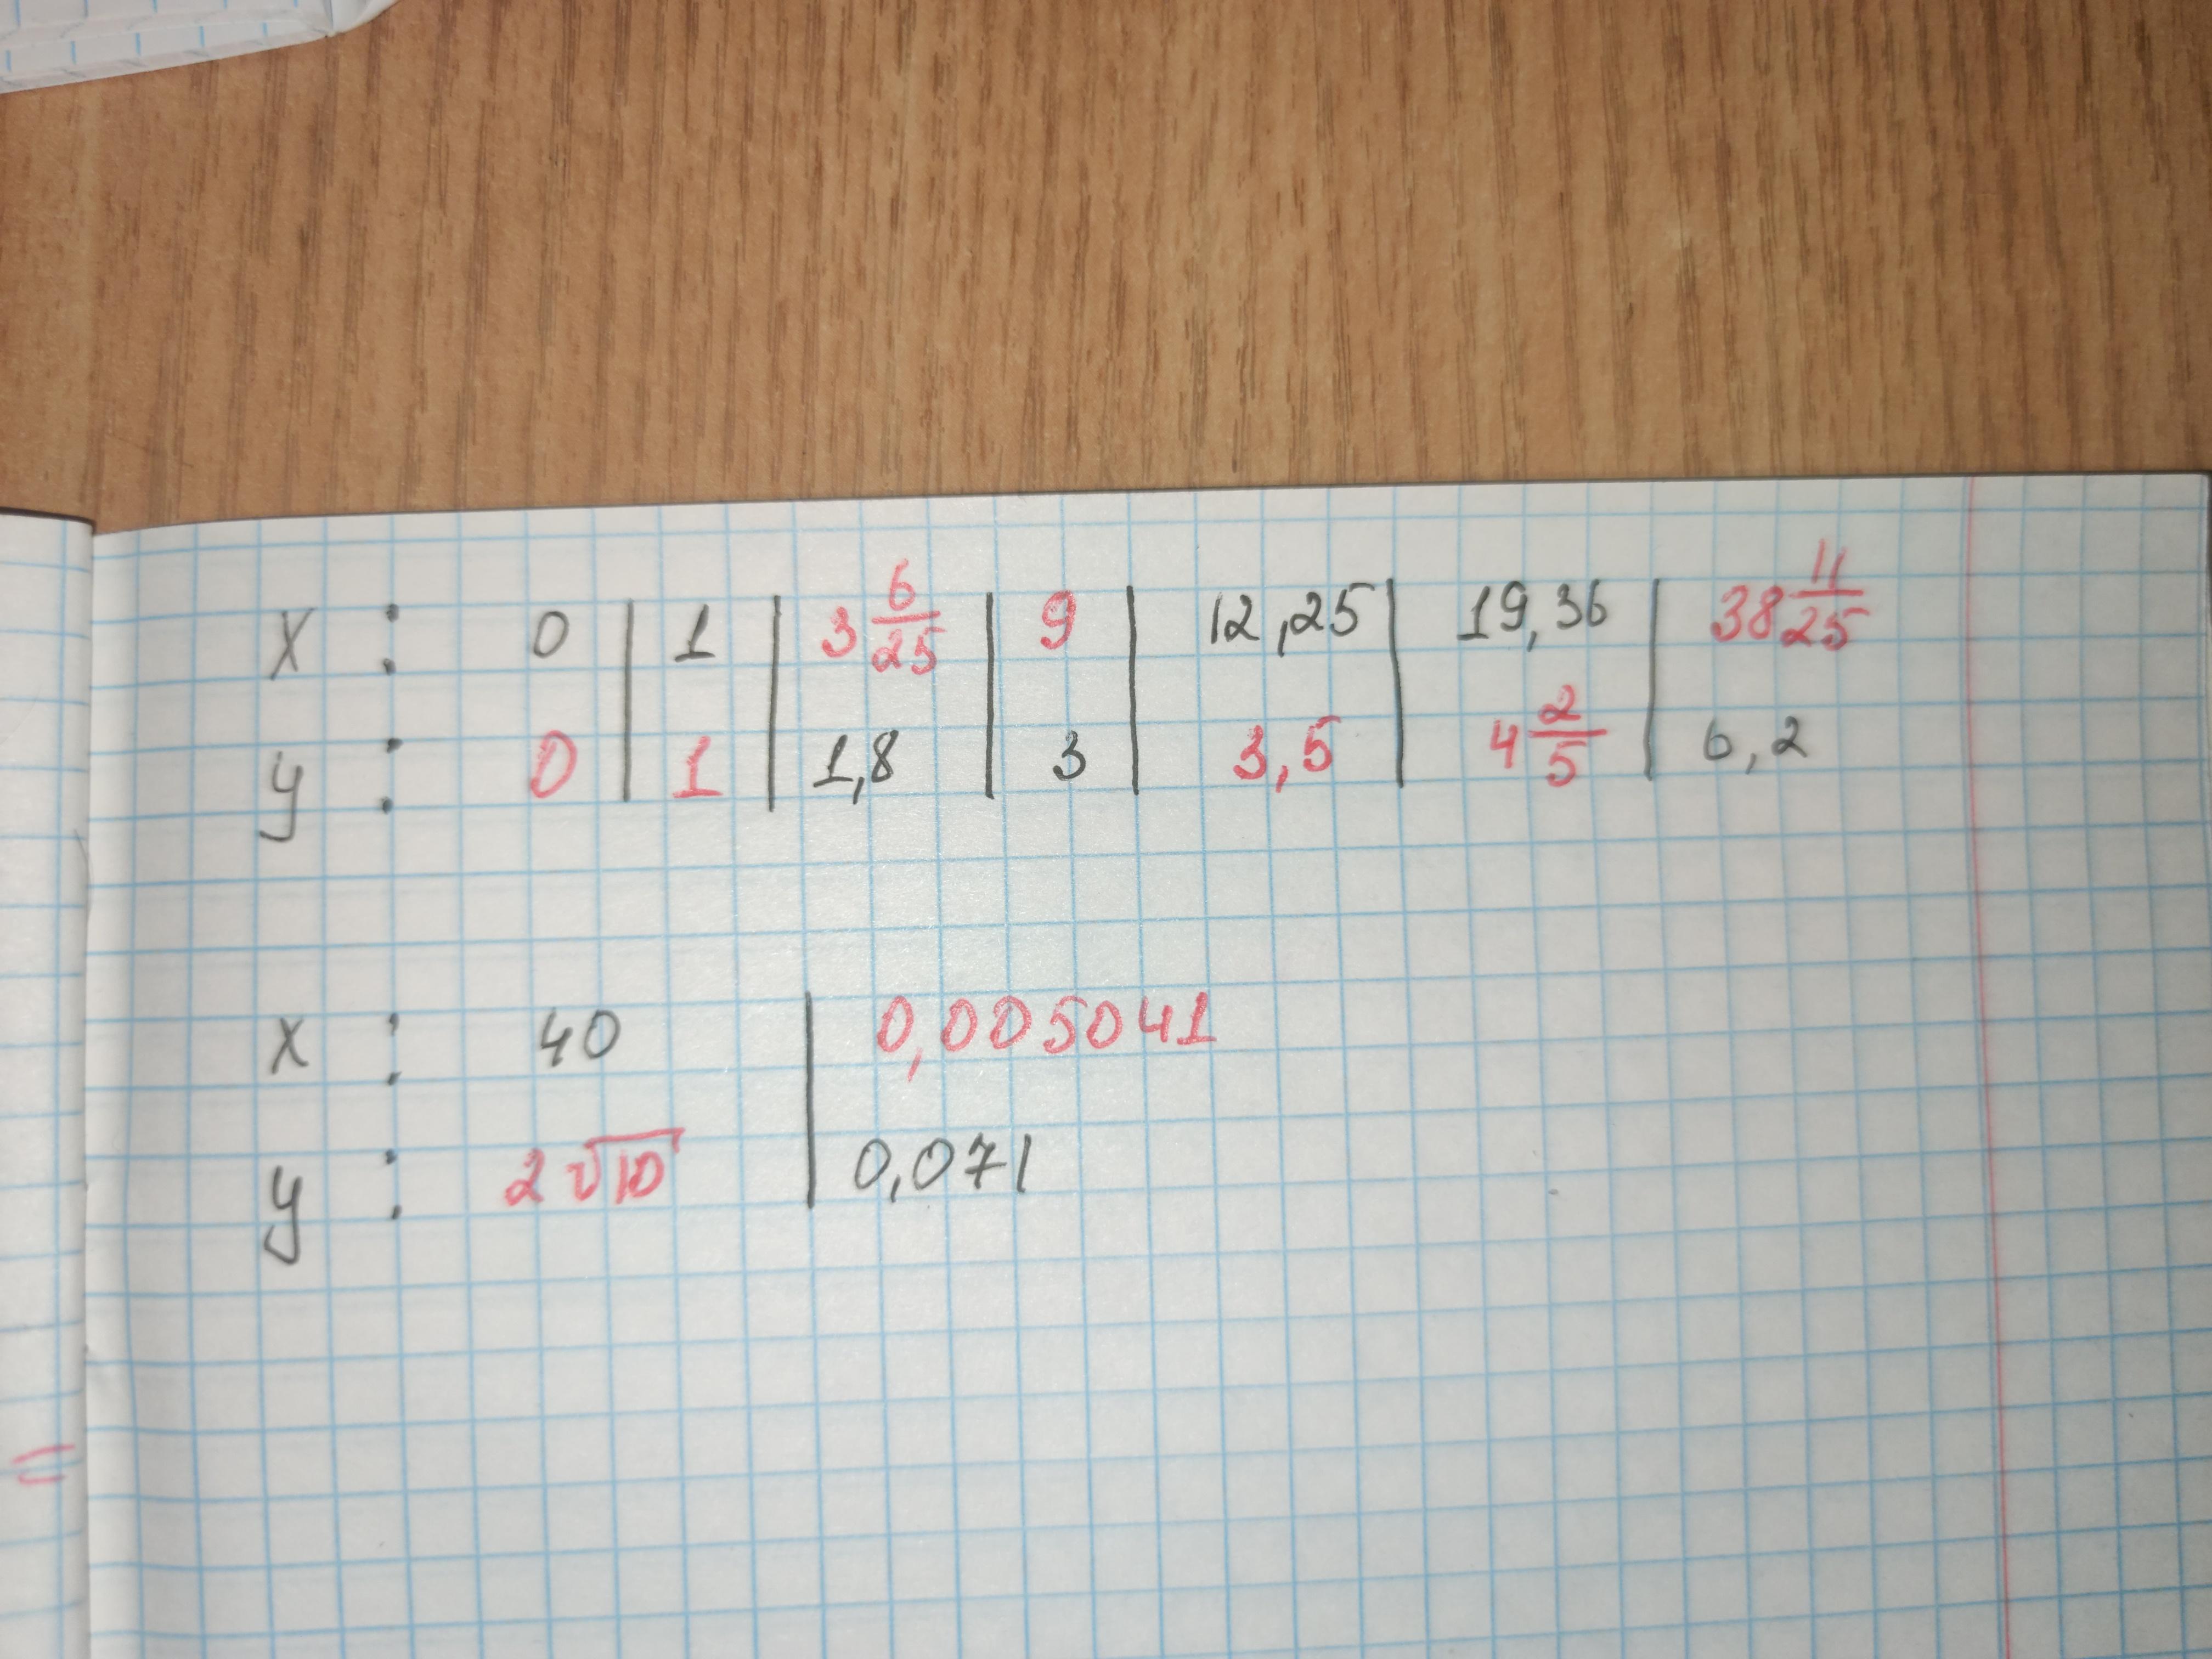 x : 0 | 1 | 3 6/25 | 9 | 12,25 | 19,36 | 38 11/25
y : 0 | 1 | 1,8 | 3 | 3,5 | 4 2/5 | 6,2
x : 40 | 0,005041
y : 2√10 | 0,071
=